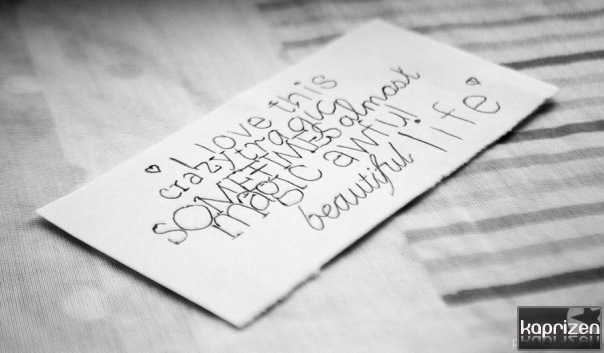 ♥ I love this
crazy, tragic
SOMETIMES almost
magic awful
beautiful life ♥
kaprizen